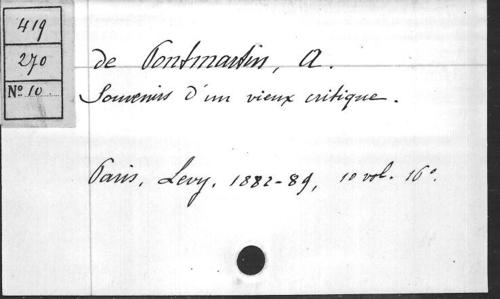 419
270
No 10.
de Pontmartin, A.
Souvenirs d'un vieux critique.
Paris, Levy, 1882-89, 10 vol. 16°.